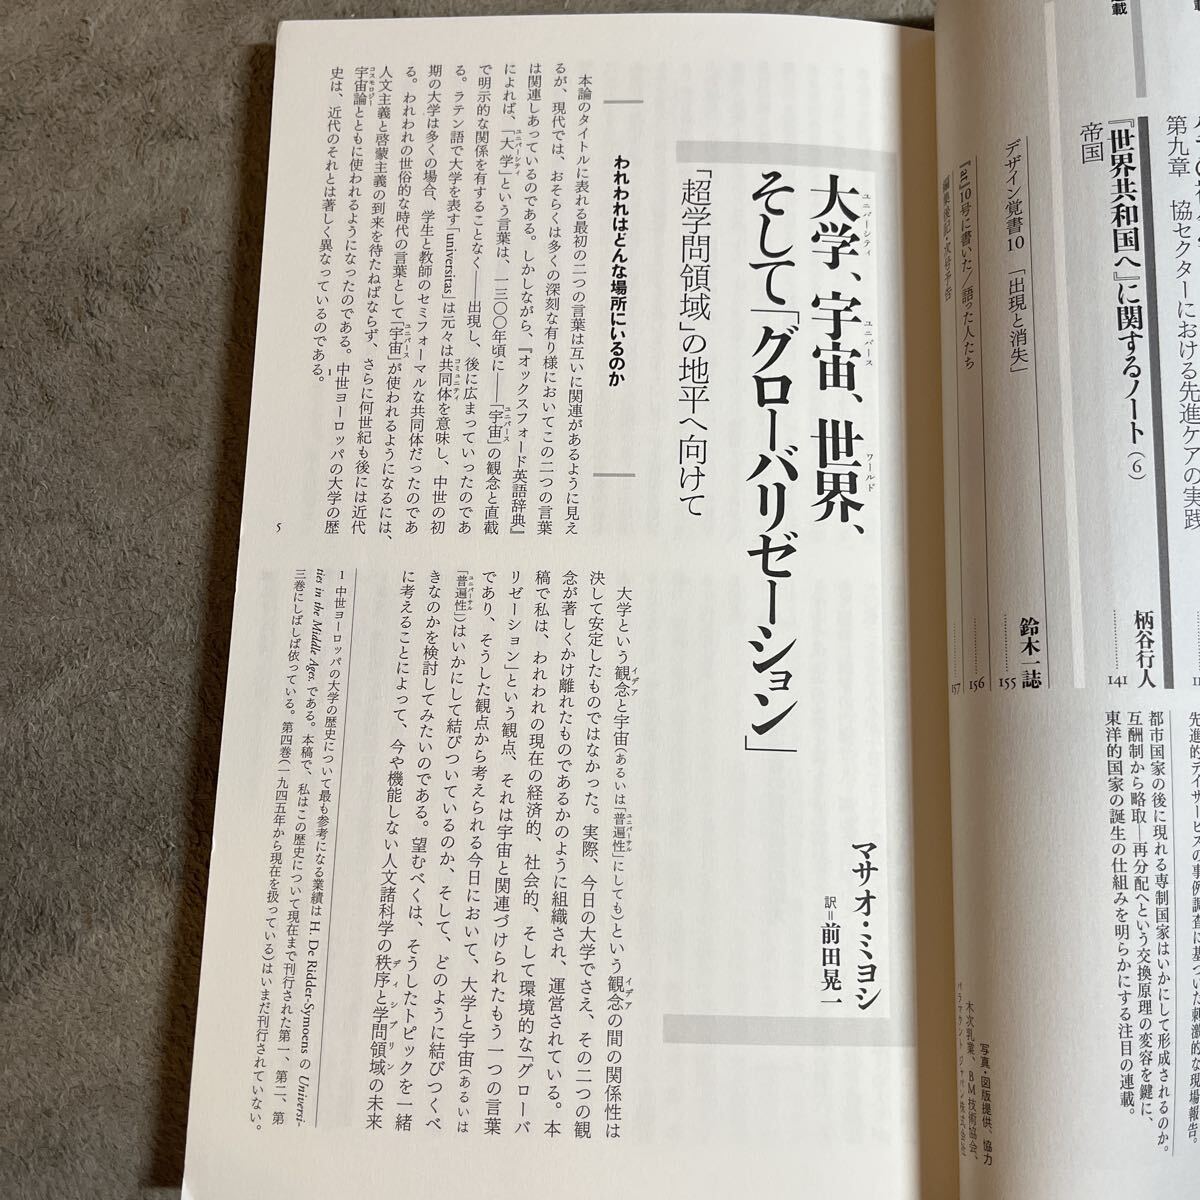 載
第九章 協セクターにおける先進ケアの実践
『世界共和国へ』に関するノート(6)
帝国
柄谷行人
141
デザイン覚書10 「出現と消失」
鈴木一誌
155
『at』10号に書いた/語った人たち
156
編集後記・次号予告
157
先進的デイサービスの事例調査に基づいた刺激的な現場報告。
都市国家の後に現れる専制国家はいかにして形成されるのか。
互酬制から略取―再分配へという交換原理の変容を鍵に、
東洋的国家の誕生の仕組みを明らかにする注目の連載。
写真・図版提供、協力
木次乳業、BM技術協会、
パラマウントジャパン株式会社
大学、宇宙、世界、
ユニバーシティ
ユニバース
ワールド
そして「グローバリゼーション」
「超学問領域」の地平へ向けて
マサオ・ミヨシ
訳=前田晃一
われわれはどんな場所にいるのか
本論のタイトルに表れる最初の二つの言葉は互いに関連があるように見え
るが、現代では、おそらくは多くの深刻な有り様においてこの二つの言葉
は関連しあっているのである。しかしながら、『オックスフォード英語辞典』
によれば、「大学」という言葉は、一三〇〇年頃に――「宇宙」の観念と直截
ユニバーシティ
ユニバース
で明示的な関係を有することなく――出現し、後に広まっていったのであ
る。ラテン語で大学を表す「universitas」は元々は共同体を意味し、中世の初
コミュニティ
期の大学は多くの場合、学生と教師のセミフォーマルな共同体だったのであ
る。われわれの世俗的な時代の言葉として「宇宙」が使われるようになるには、
ユニバース
人文主義と啓蒙主義の到来を待たねばならず、さらに何世紀も後には近代
宇宙論とともに使われるようになったのである。中世ヨーロッパの大学の歴
コスモロジー
史は、近代のそれとは著しく異なっているのである。1
5
大学という観念と宇宙(あるいは「普遍性」にしても)という観念の間の関係性は
イデア
ユニバーサル
イデア
決して安定したものではなかった。実際、今日の大学でさえ、その二つの観
念が著しくかけ離れたものであるかのように組織され、運営されている。本
稿で私は、われわれの現在の経済的、社会的、そして環境的な「グローバ
リゼーション」という観点、それは宇宙と関連づけられたもう一つの言葉
であり、そうした観点から考えられる今日において、大学と宇宙(あるいは
「普遍性」)はいかにして結びついているのか、そして、どのように結びつくべ
ユニバーサル
きなのかを検討してみたいのである。望むべくは、そうしたトピックを一緒
に考えることによって、今や機能しない人文諸科学の秩序と学問領域の未来
ディシプリン
1 中世ヨーロッパの大学の歴史について最も参考になる業績は H. De Ridder-Symoens の Universi-
ties in the Middle Ages. である。本稿で、私はこの歴史について現在まで刊行された第一、第二、第
三巻にしばしば依っている。第四巻(一九四五年から現在を扱っている)はいまだ刊行されていない。